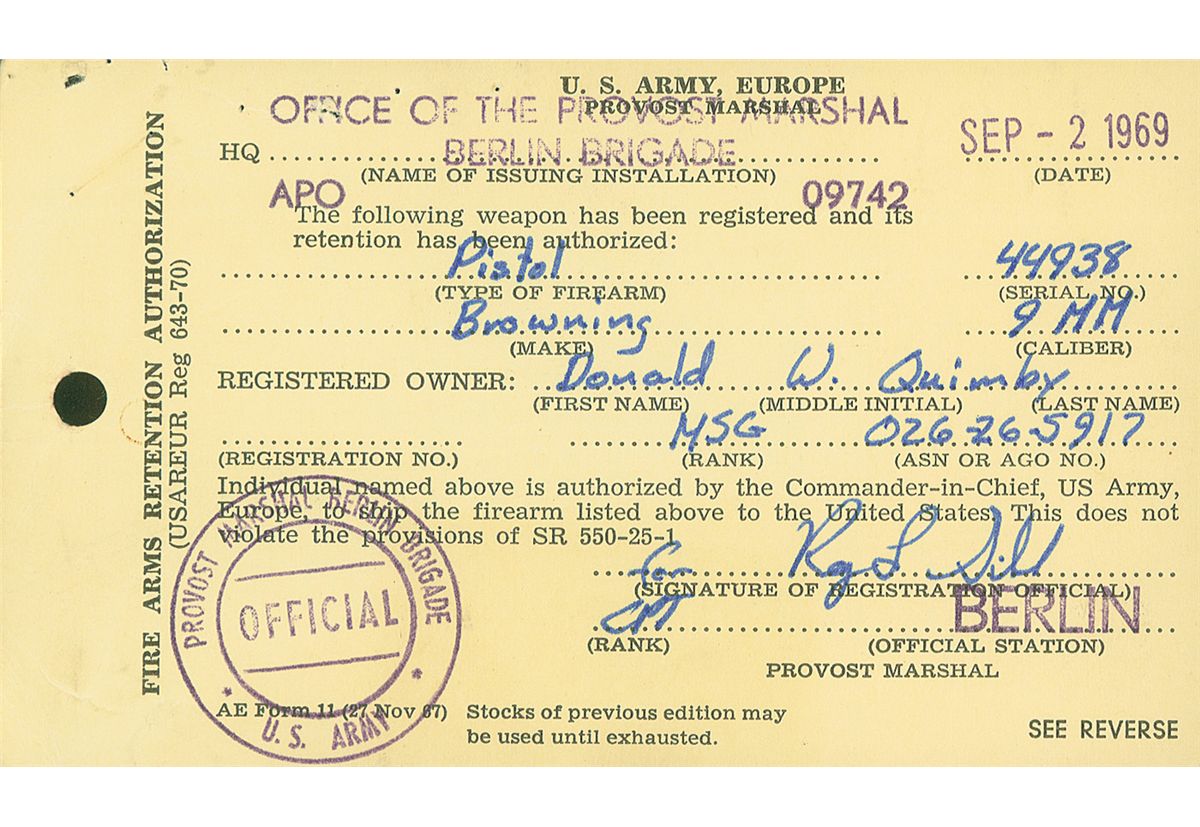 U. S. ARMY, EUROPE
PROVOST MARSHAL
OFFICE OF THE PROVOST MARSHAL
HQ BERLIN BRIGADE SEP - 2 1969
(NAME OF ISSUING INSTALLATION) (DATE)
APO 09742
The following weapon has been registered and its
retention has been authorized:
Pistol 44938
(TYPE OF FIREARM) (SERIAL NO.)
Browning 9 MM
(MAKE) (CALIBER)
REGISTERED OWNER: Donald W. Quimby
(FIRST NAME) (MIDDLE INITIAL) (LAST NAME)
MSG 026-26-5917
(REGISTRATION NO.) (RANK) (ASN OR AGO NO.)
Individual named above is authorized by the Commander-in-Chief, US Army,
Europe, to ship the firearm listed above to the United States. This does not
violate the provisions of SR 550-25-1
for
(SIGNATURE OF REGISTRATION OFFICIAL)
CPT BERLIN
(RANK) (OFFICIAL STATION)
PROVOST MARSHAL
AE Form 11 (27 Nov 67) Stocks of previous edition may
be used until exhausted.
SEE REVERSE
FIRE ARMS RETENTION AUTHORIZATION
(USAREUR Reg 643-70)
PROVOST MARSHAL BERLIN BRIGADE
OFFICIAL
* U.S. ARMY *